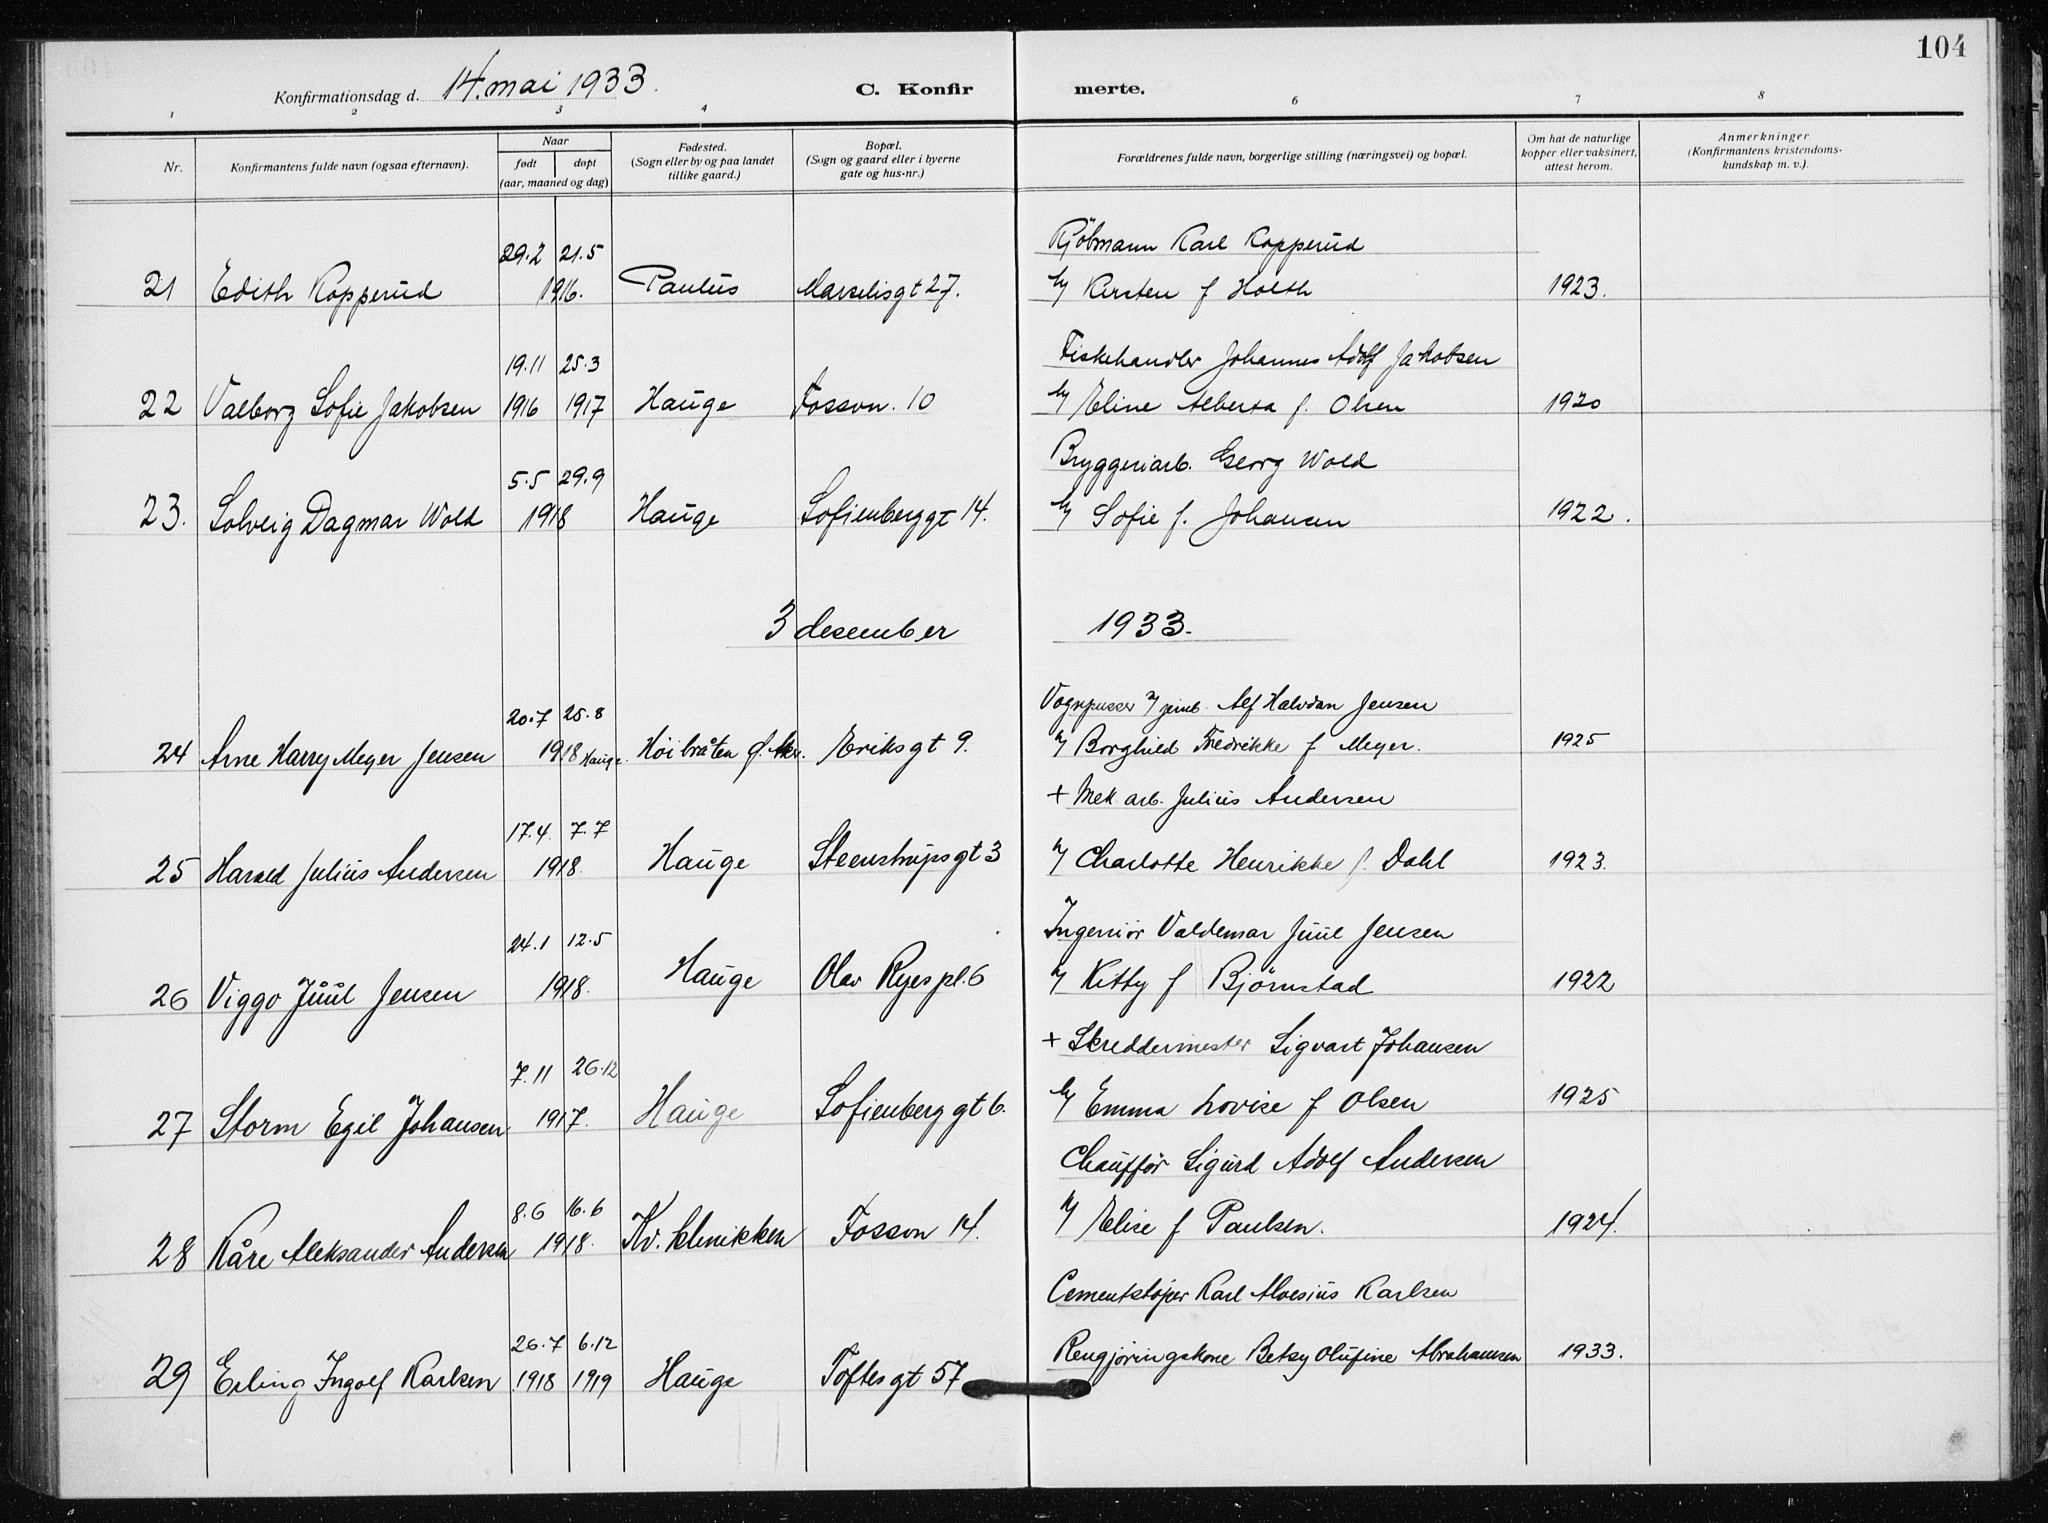 104
Konfirmationsdag d. 14. mai 1933.
C. Konfirmerte.
1 2 3 4 6 7 8
Nr. Konfirmantens fulde navn (ogsaa efternavn). Naar født døpt (aar, maaned og dag) Fødested. (Sogn eller by og paa landet tillike gaard.) Bopæl. (Sogn og gaard eller i byerne gate og hus-nr.) Forældrenes fulde navn, borgerlige stilling (næringsvei) og bopæl. Om hat de naturlige kopper eller vaksinert, attest herom. Anmerkninger. (Konfirmantens kristendoms-kundskap m. v.).
29.2 21.5 Kjöbmann Karl Kopperud
21 Edith Kopperud 1916. Paulus Marselisgt 27. Kirsten f Holth 1923.
19.11 25.3 Fiskehandler Johannes Adolf Jakobsen
22 Valborg Sofie Jakobsen 1916 1917 Hauge Fossvn. 10 Eline Alberta f. Olsen 1920
5.5 29.9 Bryggeriarb. Georg Wold
23. Solveig Dagmar Wold 1918 Hauge Sofienberggt 14. Sofie f. Johansen 1922.
3 desember 1933.
20.7 25.8 Vognpusser Alf Halvdan Jensen
24 Arne Harry Meyer Jensen 1918 Hauge. Höibråten Ø. Akr. Eriksgt 9. Borghild Fredrikke f Meyer. 1925
+ Mek. arb. Julius Andersen
17.4. 7.7
25 Harald Julius Andersen 1918. Hauge Steenstrupsgt 3 Charlotte Henrikke f. Dahl 1923.
24.1 12.5 Ingeniör Valdemar Juul Jensen
26 Viggo Juul Jensen 1918. Hauge Olav Ryespl. 6 Kitty f Bjørnstad 1922
+ Skreddermester Sigvart Johansen
7.11 26.12
27 Storm Egil Johansen 1917. Hauge Sofienberggt 6. Emma Lovise f Olsen 1925
Chauffør Sigurd Adolf Andersen
8.6 16.6
28 Kåre Aleksander Andersen 1918. Kv. klinikken Fossvn 14. Elise f Paulsen. 1924.
Cementstøper Karl Aloesius Karlsen
26.7 6.12
29 Erling Ingolf Karlsen 1918 1919 Hauge Toftesgt 57 Rengjøringskone Betsy Olufine Abrahamsen 1933.